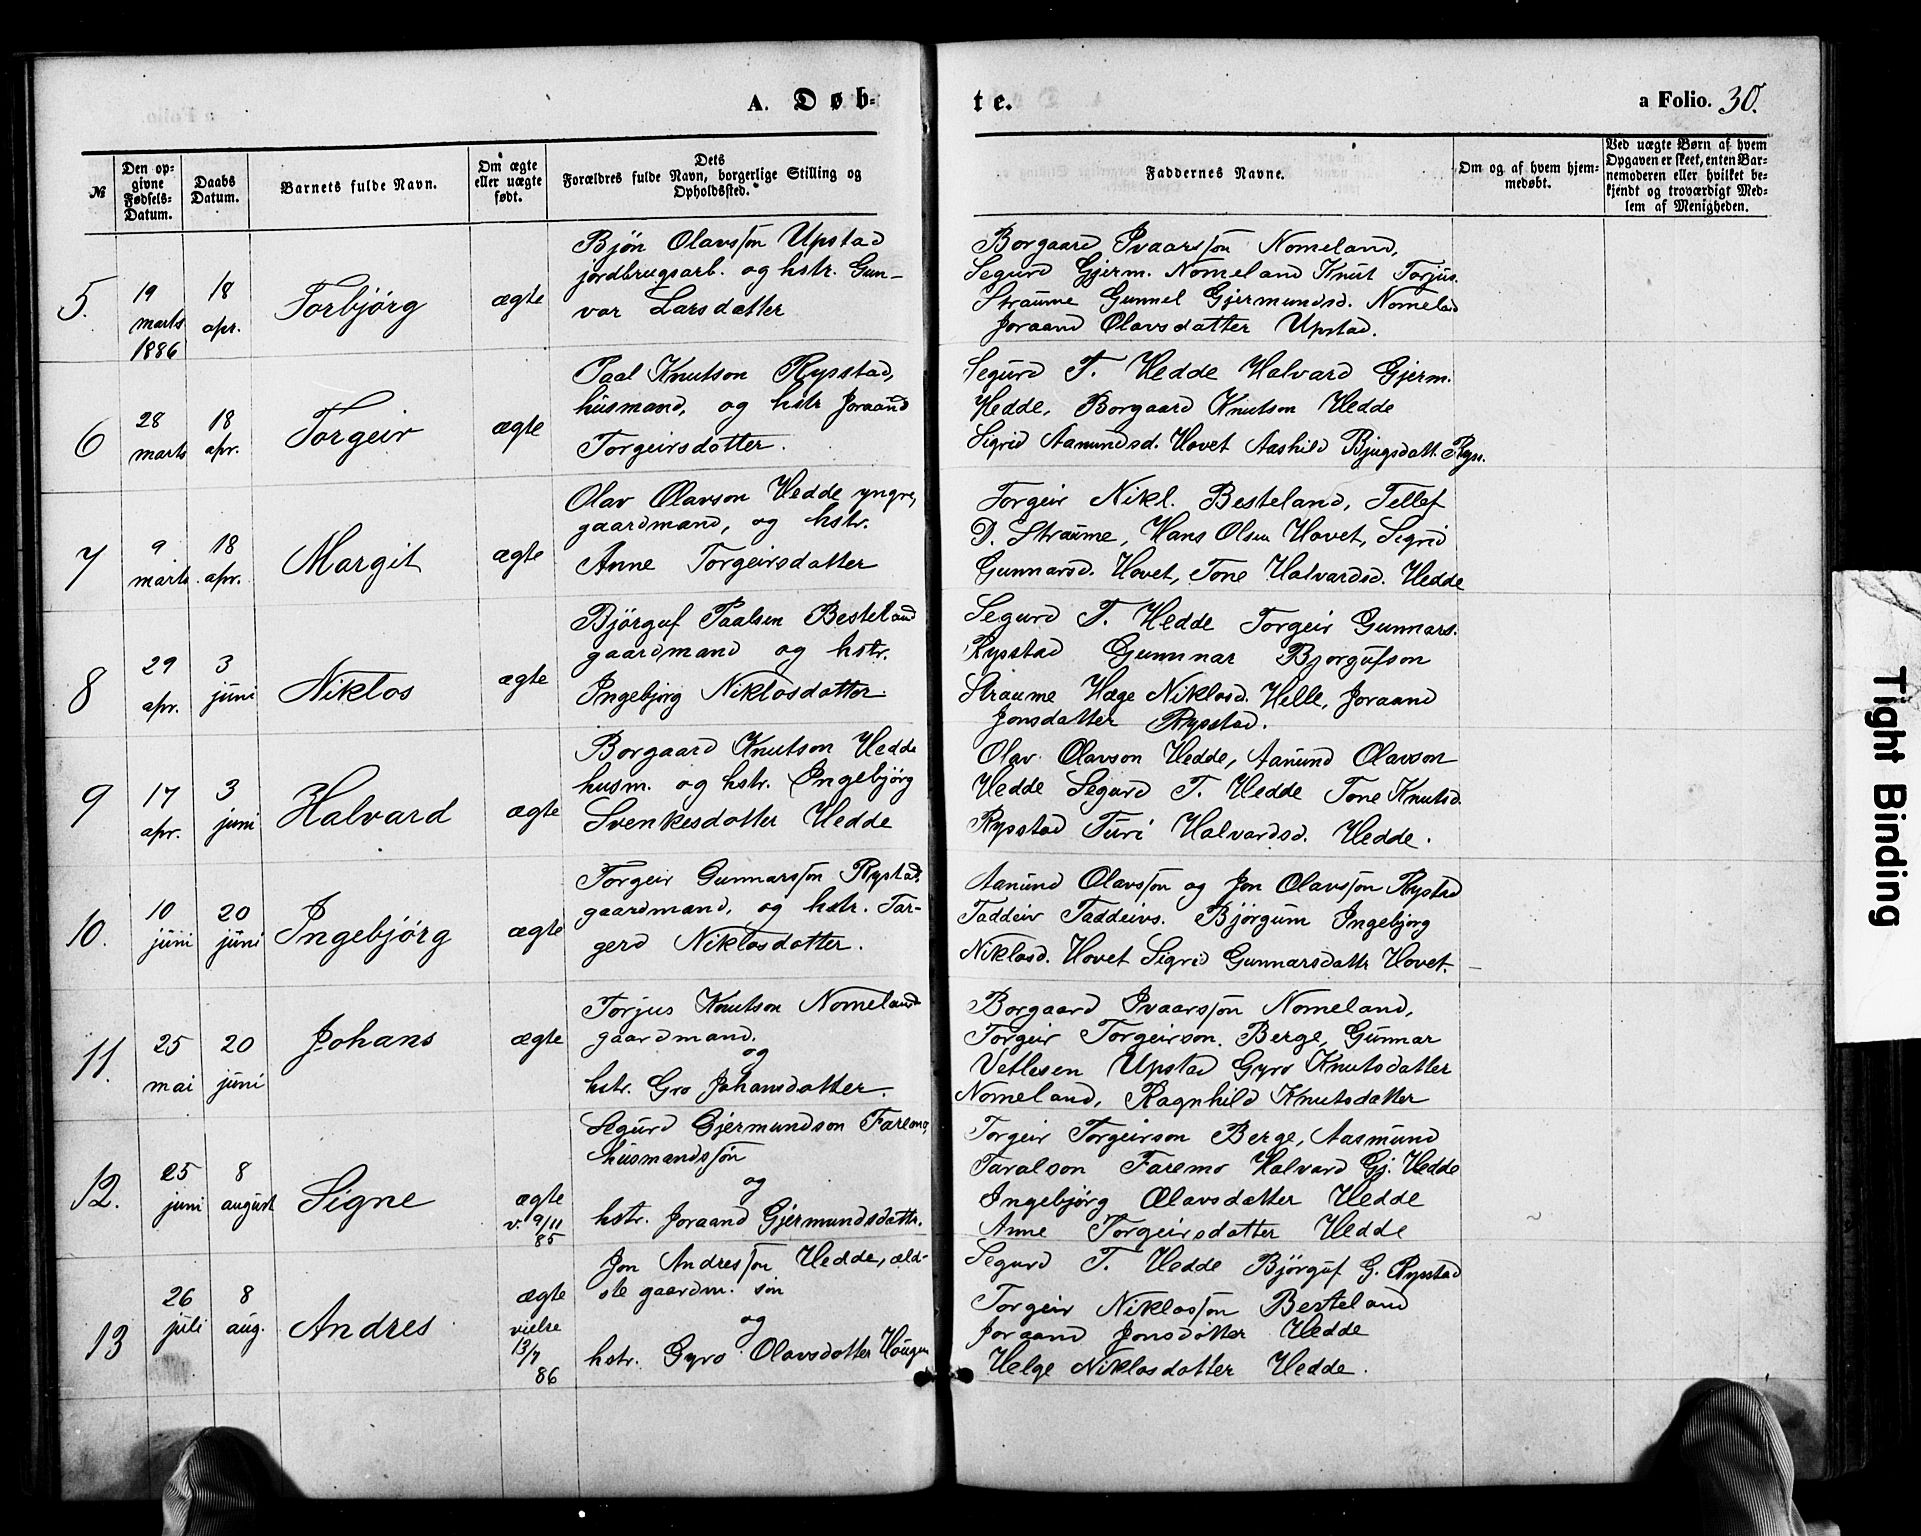 A. Døb-
te.
a Folio. 30.
№
Den op-
givne
Fødsels-
Datum.
Daabs
Datum.
Barnets fulde Navn.
Om ægte
eller uægte
født.
Dets
Forældres fulde Navn, borgerlige Stilling og
Opholdssted.
Faddernes Navne.
Om og af hvem hjem-
medøbt.
Ved uægte Børn af hvem
Opgaven er skeet, enten Bar-
nemoderen eller hvilket be-
kjendt og troværdigt Med-
lem af Menigheden.
5.
19
marts
1886
18
apr.
Torbjörg
ægte
Bjön Olavssön Upstad
jordbrugsarb. og hstr. Gun-
vor Larsdatter
Borgaard Ivaarssön Nomeland,
Segurd Gjerm. Nomeland Knut Torjus.
Straume Gunnel Gjermundsd. Nomeland
Joraand Olavsdatter Upstad.
6
28
marts
18
apr.
Torgeir
ægte
Paal Knutson Rysstad,
husmand, og hstr Joraand
Torgeirsdatter.
Segurd T. Hedde Halvard Gjerm.
Hedde, Borgaard Knutson Hedde
Sigrid Aanundsd. Hovet Aashild Bjugsdatt. Ryss.
7
9
marts
18
apr.
Margit
ægte
Olav Olavson Hedde yngre,
gaardmand, og hstr.
Anne Torgeirsdatter
Torgeir Nikl. Besteland, Tellef
D. Straume, Hans Olsen Hovet, Sigrid
Gunnarsd. Hovet, Tone Halvardsd. Hedde
8
29
apr.
3
juni
Niklos
ægte
Björguf Paalsen Besteland
gaardmand og hstr.
Ingebjörg Niklosdatter.
Segurd T. Hedde Torgeir Gunnars.
Rysstad Gunnnar Bjorgufson
Straume Hæge Niklosd. Helle, Joraand
Jonsdatter Rysstad.
9
17
apr.
3
juni
Halvard
ægte
Borgaard Knutson Hedde
husm. og hstr. Ingebjörg
Svenkesdatter Hedde
Olav Olavson Hedde, Aanund Olavson
Hedde Segurd T. Hedde Tone Knutsd.
Rysstad Turi Halvardsd. Hedde.
10.
10
juni
20
juni
Ingebjörg
ægte
Torgeir Gunnarssön Rystad
gaardmand, og hstr. Tar-
gerd Niklosdatter.
Aanund Olavssön og Jon Olavssön Rystad
Taddeiv Taddeivs. Björgum Ingebjörg
Niklosd. Hovet Sigrid Gunnarsdattr Hovet.
11.
25
mai
20
juni
Johans
ægte
Torjus Knutson Nomeland
gaardmand.
og
hstr. Gro Johansdatter.
Borgaard Ivaarssön Nomeland,
Torgeir Torgeirson. Berge, Gunnar
Vetlesen Upstad Gyro Knutsdatter
Nomeland, Ragnhild Knutsdatter
12.
25
juni
8
august
Signe
ægte
v. 9/11
85
Segurd Gjermundson Faremo,
husmandssön
og
hstr. Joraand Gjermundsdattr.
Torgeir Torgeirson Berge, Aasmund
Taralson Faremo Halvard Gj. Hedde
Ingebjörg Olavsdatter Hedde
Anne Torgeirsdatter Hedde
13
26
juli
8
aug.
Andres
ægte
vielse
13/7
86
Jon Andressön Hedde, æld-
ste gaardm. sön
og
hstr. Gyro Olavsdatter Haugen
Segurd T. Hedde Björguf G. Rysstad
Torgeir Niklossön Besteland
Joraand Jonsdatter Hedde
Helge Niklosdatter Hedde.
Tight Binding